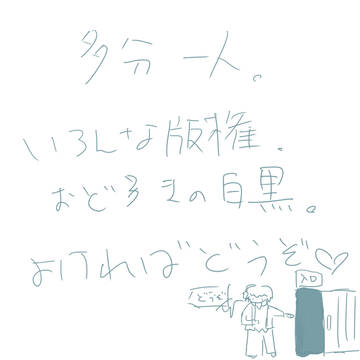 多分一人。
いろんな版権。
おどろきの白黒。
よければどうぞ♡
どうぞ
入口